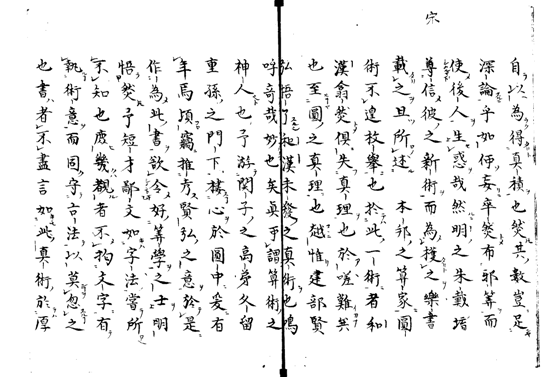 宗
自以為得真積也焚其數豈足
深論乎如便妄率焚布邪筭而
使後人生惑哉然明之朱載堉
尊信彼之新術而為授之樂書
載之且所述 本邦之筭家圓
術不遑枚舉也於此一術者和
漢翕焚俱失真理也於嗟難矣
也至圓之真理也繇惟建部賢
弘悟了和漢未發之真術也鳴
呼奇哉妙也矣真可謂筭術之
神人也予游関子之高弟久留
重孫之門下棲心於圓中爰有
年焉頃竊推考賢弘之意於是
作為此書欲令好筭學之士明
悟焚予短才鄙文如字法當所
不知也庶幾觀者不拘文字有
執術意而固守言法以莫忽之
也書者不盡言如此真術於厚